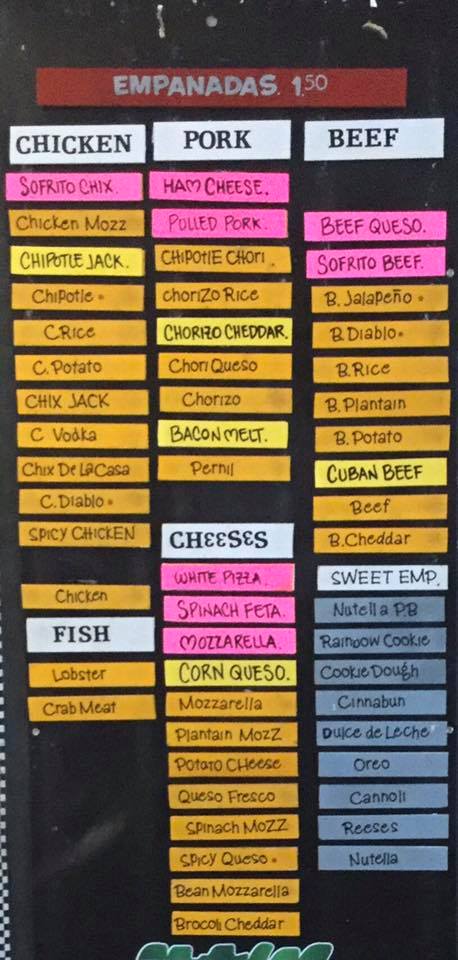 EMPANADAS. 1.50
CHICKEN
SOFRITO CHIX.
Chicken Mozz
CHIPOTLE JACK.
Chipotle
C.Rice
C. Potato
CHIX JACK
C Vodka
Chix De La Casa
C. Diablo
SPICY CHICKEN
Chicken
FISH
Lobster
Crab Meat
PORK
HAM CHEESE.
PULLED PORK.
CHIPOTlE CHORI.
chorizo Rice
CHORIZO CHEDDAR.
Chori Queso
Chorizo
BACON MELT.
Pernil
CHEESES
WHITE PIZZA.
SPINACH FETA.
MOZZARELLA.
CORN QUESO.
Mozzarella
Plantain Mozz
Potato CHeese
Queso Fresco
Spinach Mozz
Spicy Queso
Bean Mozzarella
Brocoli Cheddar
BEEF
BEEF QUESO.
SOFRITO BEEF.
B. Jalapeño
B. Diablo
B. Rice
B. Plantain
B. Potato
CUBAN BEEF
Beef
B. Cheddar
SWEET EMP.
Nutella P.B
Rainbow Cookie
Cookie Dough
Cinnabun
Dulce de Leche
Oreo
Cannoli
Reeses
Nutella